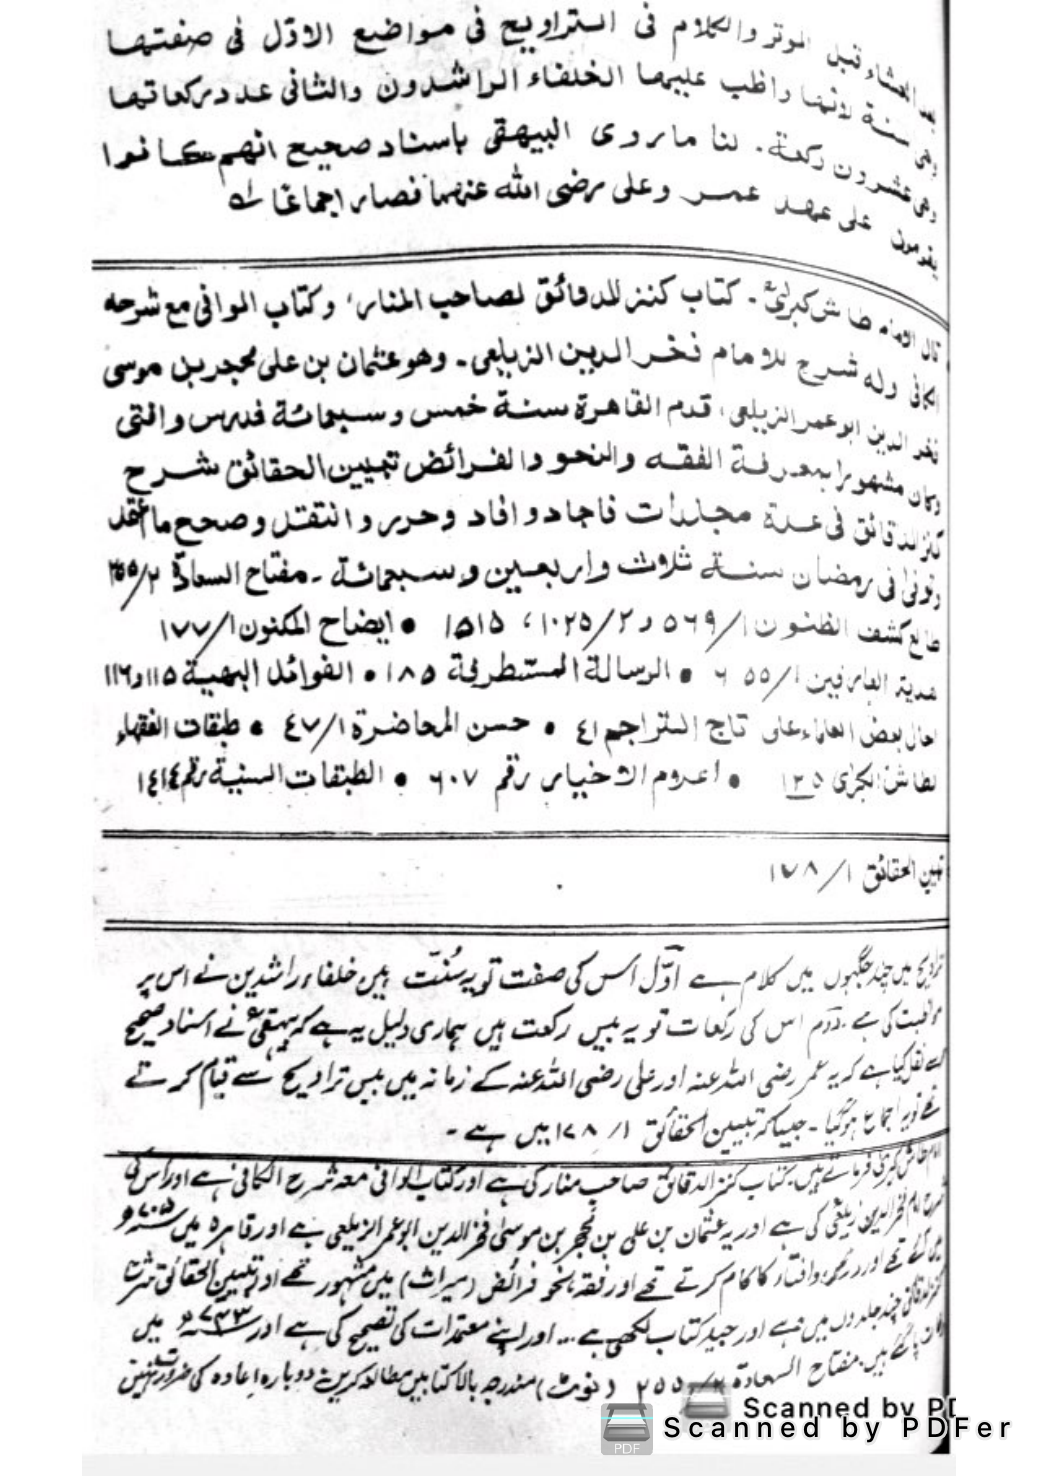 بعد العشاء قبل الوتر والكلام فى التراويح فى مواضع الاوّل فى صفتها
وهى سنة لانها واظب عليها الخلفاء الراشدون والثانى عدد ركعاتها
وهى عشرون ركعة. لنا ما روى البيهقى باسناد صحيح انهم كانوا
يقومون على عهد عمر وعلى رضى الله عنهما فصار اجماعًا
قال الامام طاش كبرىٰ ـ كتاب كنز الدقائق لصاحب المنار، وكتاب الوافى مع شرحه
الكافى وله شرح للامام فخر الدين الزيلعى ـ وهو عثمان بن على محجر بن موسى
فخر الدين ابو عمر الزيلعى، قدم القاهرة سنة خمس وسبعمائة فدرس وافتى
وكان مشهورا بمعرفة الفقه والنحو والفرائض تبيين الحقائق شرح
كنز الدقائق فى عدة مجلدات فاجاد وافاد وحرر وانتقد وصحح ما
وتوفى فى رمضان سنة ثلاث واربعين وسبعمائة ـ مفتاح السعادة ٢/
طالع كشف الظنون ١/ ٥٦٩ و ٢/ ١٠٢٥، ١٥١٥ • ايضاح المكنون ١/ ١٧٧
هدية العارفين ١/ ٦٥٥ • الرسالة المستطرفة ١٨٥ • الفوائد البهية ١١٥ و١١٦
بعض العلماء على تاج التراجم ٤١ • حسن المحاضرة ١/ ٤٧ • طبقات الفقهاء
لطاش الكبرى ١٢٥ • اعدوم الاخيار رقم ٦٠٧ • الطبقات السنية رقم ١٤١٤
تبين الحقائق ١/ ١٧٨
تراویح میں چند جگہوں میں کلام ہے اوّل اس کی صفت تو یہ سُنّت ہیں خلفاء راشدین نے اس پر
مواظبت کی ہے۔ دوم اس کی رکعات تو یہ بیس رکعت ہیں ہماری دلیل یہ ہے کہ بیہقی نے اسناد صحیح
سے نقل کیا ہے کہ یہ عمر رضی اللہ عنہ اور علی رضی اللہ عنہ کے زمانہ میں بیس تراویح سے قیام کرتے
تھے تو یہ اجماع ہوگیا۔ جیسا کہ تبیین الحقائق ١/ ١٧٨ میں ہے۔
امام طاش کبریٰ فرماتے ہیں۔ کتاب کنز الدقائق صاحب منار کی ہے اور کتاب الوافی معہ شرح الکافی ہے اور اس کی
شرح امام فخر الدین زیلعی کی ہے اور یہ عثمان بن علی بن محجر بن موسیٰ فخر الدین ابو عمر الزیلعی ہے اور قاہرہ میں ٧٠٥ھ کو
تھے اور درس و افتاء کا کام کرتے تھے اور فقہ نحو فرائض (میراث) میں مشہور تھے اور تبیین الحقائق شرح
کنز الدقائق چند جلدوں میں ہے اور جید کتاب لکھی ہے... اور اپنے معتمدات کی تصحیح کی ہے اور ٧٤٣ھ میں
وفات پا گئے ہیں۔ مفتاح السعادة ٢/ ٢٥٥ (نوٹ) مندرجہ بالا کتابیں مطالعہ کریں دوبارہ اعادہ کی ضرورت نہیں
Scanned by PD
Scanned by PDFer
PDF